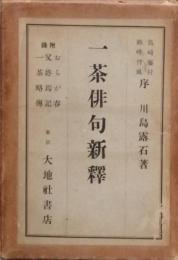 島崎藤村
序
川島露石著
一茶俳句新釋
附録
おらが春
父終焉記
一茶略傳
東京
大地社書店